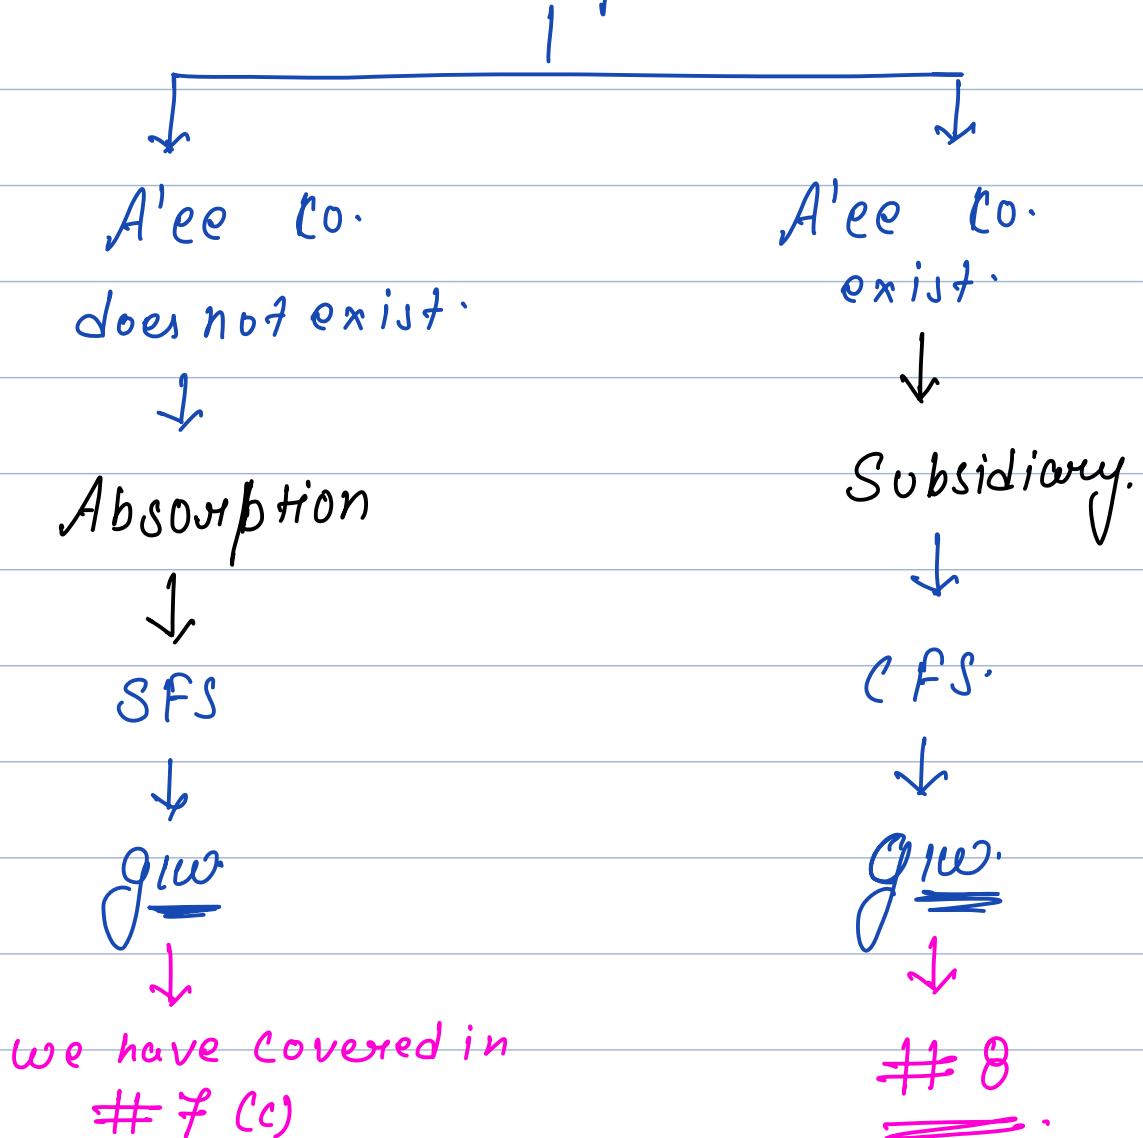 A'ee Co.
does not exist.
Absorption
SFS
g/w.
we have covered in
# 7 (c)
A'ee Co.
exist.
Subsidiary.
CFS.
g/w.
# 8